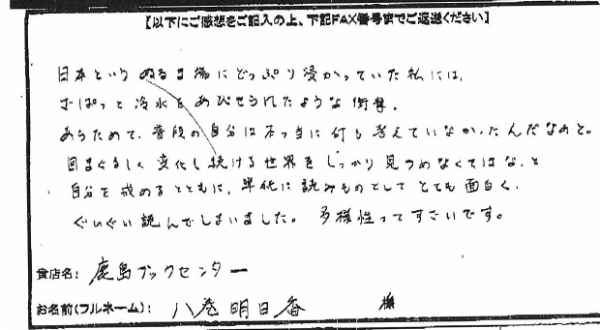 【以下にご感想をご記入の上、下記FAX番号までご返送ください】
日本というぬるま湯にどっぷり浸かっていた私には、
ざばっと冷水をあびせられたような衝撃。
あらためて、普段の自分は本当に何も考えていなかったんだなあと。
目まぐるしく変化し続ける世界をしっかり見つめなくてはな、と
自分を戒めるとともに、単純に読みものとしてとても面白く、
ぐいぐい読んでしまいました。多様性ってすごいです。
貴店名：鹿島ブックセンター
お名前(フルネーム)：八巻明日香 様